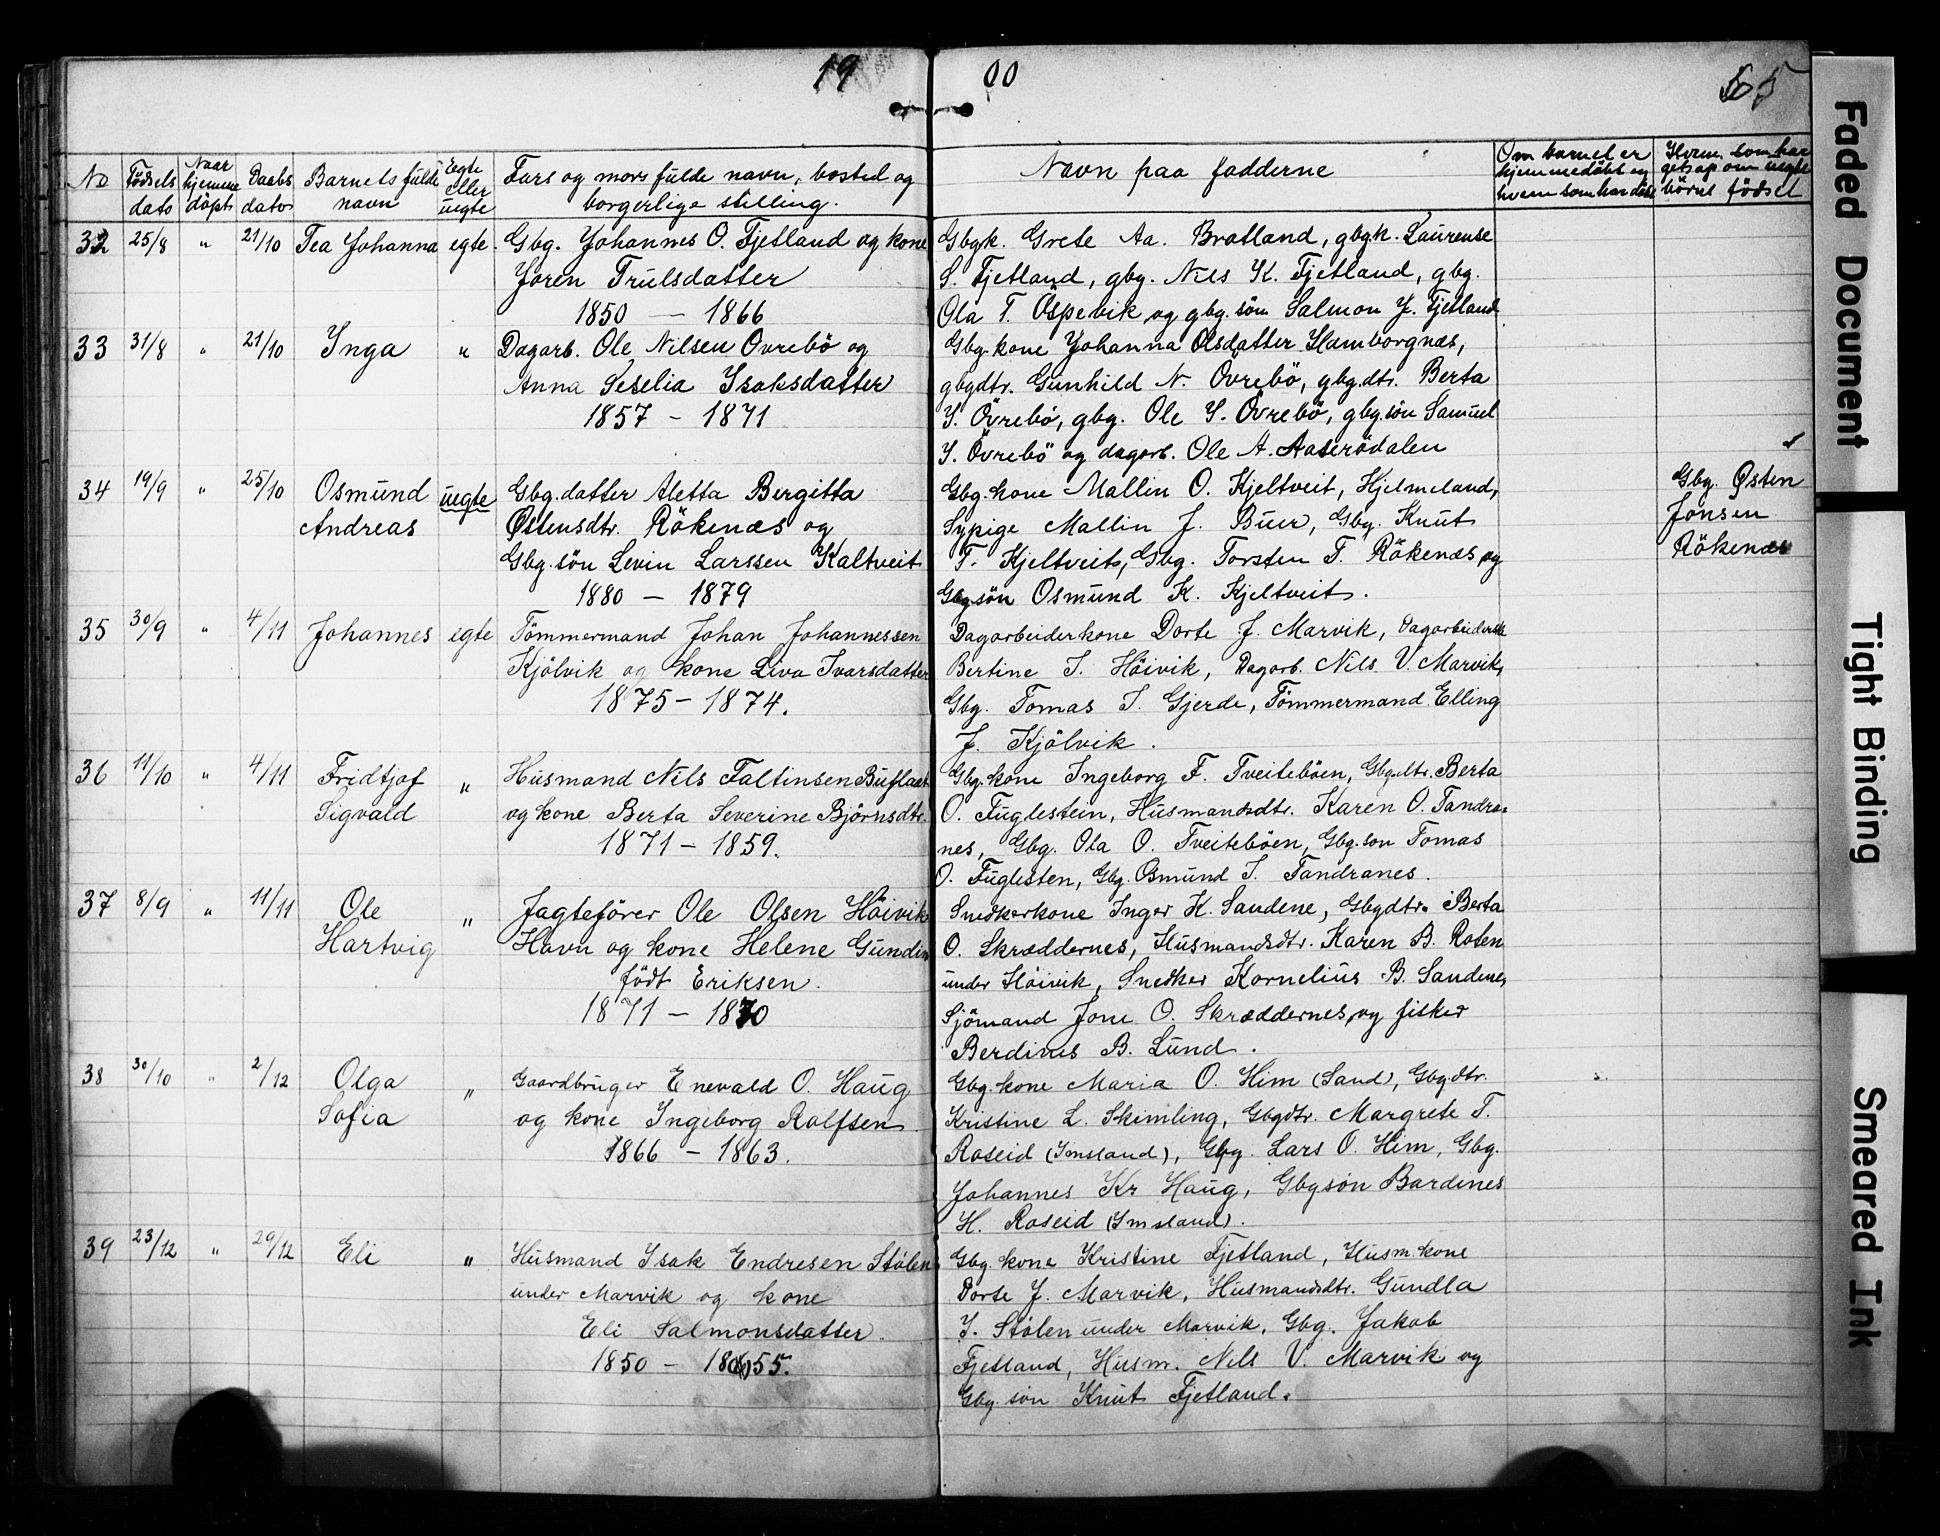 19 00 55
No Födsels dato Naar hjemme döpt Daabs dato Barnets fulde navn Egte eller uegte Fars og mors fulde navn, bosted og borgerlige stilling. Navn paa fadderne Om barnet er hjemmedöbt og hvem som har döbt Hvem som har börns födsel
32 25/8 " 21/10 Tea Johanna egte Gbg. Johannes O. Fjetland og kone Gbgk. Grete Aa. Bratland, gbgk. Laurense
Joren Trulsdatter S. Fjetland, gbg. Nils K. Fjetland, gbg.
1850 — 1866 Ola T. Öspevik og gbg. sön Salmon J. Fjetland
33 31/8 " 21/10 Inga " Dagarb. Ole Nilsen Övrebö og Gbg. kone Johanna Olsdatter Hamborgnæs,
Anna Seselia Isaksdatter gbgdtr. Gunhild N. Övrebö, gbg.dtr. Berta
1857 — 1871 I. Övrebö, gbg. Ole I. Övrebö, gbg. sön Samuel
I. Övrebö og dagarb. Ole A. Aaserödalen
34 19/9 " 25/10 Osmund uegte Gbg. datter Aletta Bergitta Gbg. kone Mallin O. Kjeltveit, Hjelmeland, Gbg. Østen
Andreas Østensdtr. Rökenæs og Sypige Mallin J. Buer, Gbg. Knut Jonsen
Gbg. sön Levin Larssen Kaltveit T. Kjeltveit, Gbg. Torsten T. Rökenæs og Rökenæs
1880 — 1879 Gbg. sön Osmund K. Kjeltveit.
35 30/9 " 4/11 Johannes egte Tömmermand Johan Johannessen Dagarbeiderkone Dorte J. Marvik, Dagarbeiderk.
Kjölvik og kone Liva Ivarsdatter Bertine I. Höivik, Dagarb. Nils V. Marvik,
1875 — 1874. Gbg. Tomas I. Gjerde, Tömmermand Elling
J. Kjölvik.
36 11/10 " 4/11 Fridtjof " Husmand Nils Faltinsen Buflaat Gbg. kone Ingeborg F. Tveiteböen, Gbg.dtr. Berta
Sigvald og kone Berta Severine Björnsdtr. O. Fuglestein, Husmandsdtr. Karen O. Tandra-
1871 — 1859. nes, Gbg. Ola O. Tveiteböen, Gbg. son Tomas
O. Fuglesten, Gbg. Osmund I. Tandranes.
37 8/9 " 11/11 Ole " Jagteförer Ole Olsen Höivik Snedkerkone Inger K. Sandene, Gbgdtr. Berta
Hartvig Havn og kone Helene Gundine O. Skræddernes, Husmandsdtr. Karen B. Roten
födt Eriksen. under Höivik, Snedker Kornelius B. Sandene,
1871 — 1870 Sjömand Jone O. Skræddernes, og fisker
Berdines B. Lund.
38 30/10 " 2/12 Olga " Gaardbruger Enevald O. Haug Gbg. kone Maria O. Him (Sand), Gbgdtr.
Sofia og kone Ingeborg Rolfsen Kristine L. Skimling, Gbgdtr. Margrete T.
1866 — 1863. Roseid (Imsland), Gbg. Lars O. Him, Gbg.
Johannes Kr Haug, Gbgsön Bardines
H. Roseid (Imsland).
39 23/12 " 29/12 Eli " Husmand Isak Endresen Stölen Gbg. kone Kristine Fjetland, Husm. kone
under Marvik og kone Dorte J. Marvik, Husmandsdtr. Gundla
Eli Salmonsdatter. I. Stölen under Marvik, Gbg. Jakob
1850 — 1855. Fjetland, Husm. Nils V. Marvik og
Gbg. sön Knut Fjetland.
Faded Document
Tight Binding
Smeared Ink